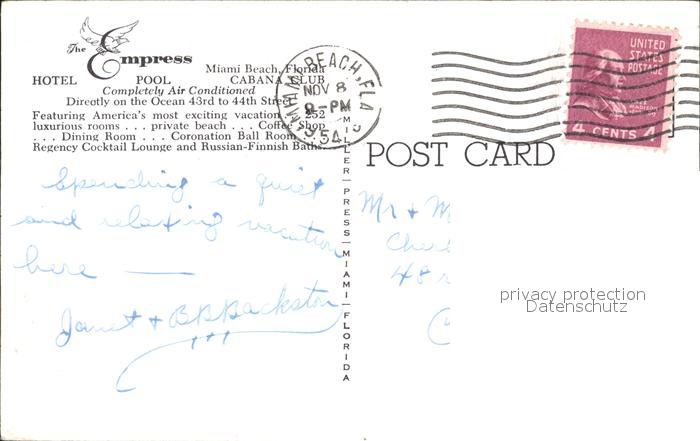 The Empress
Miami Beach, Florida
HOTEL POOL CABANA CLUB
Completely Air Conditioned
Directly on the Ocean 43rd to 44th Street
Featuring America's most exciting vacation 252
luxurious rooms . . . private beach . . . Coffee Shop
. . . Dining Room . . . Coronation Ball Room
Regency Cocktail Lounge and Russian-Finnish Baths
MIAMI BEACH, FLA
NOV 8
PM
1954
UNITED
STATES
POSTAGE
4 CENTS 4
POST CARD
MILLER PRESS MIAMI FLORIDA
Spending a quiet
and relaxing vacation
here —
Janet +
Mr + M
Cher
48
privacy protection
Datenschutz